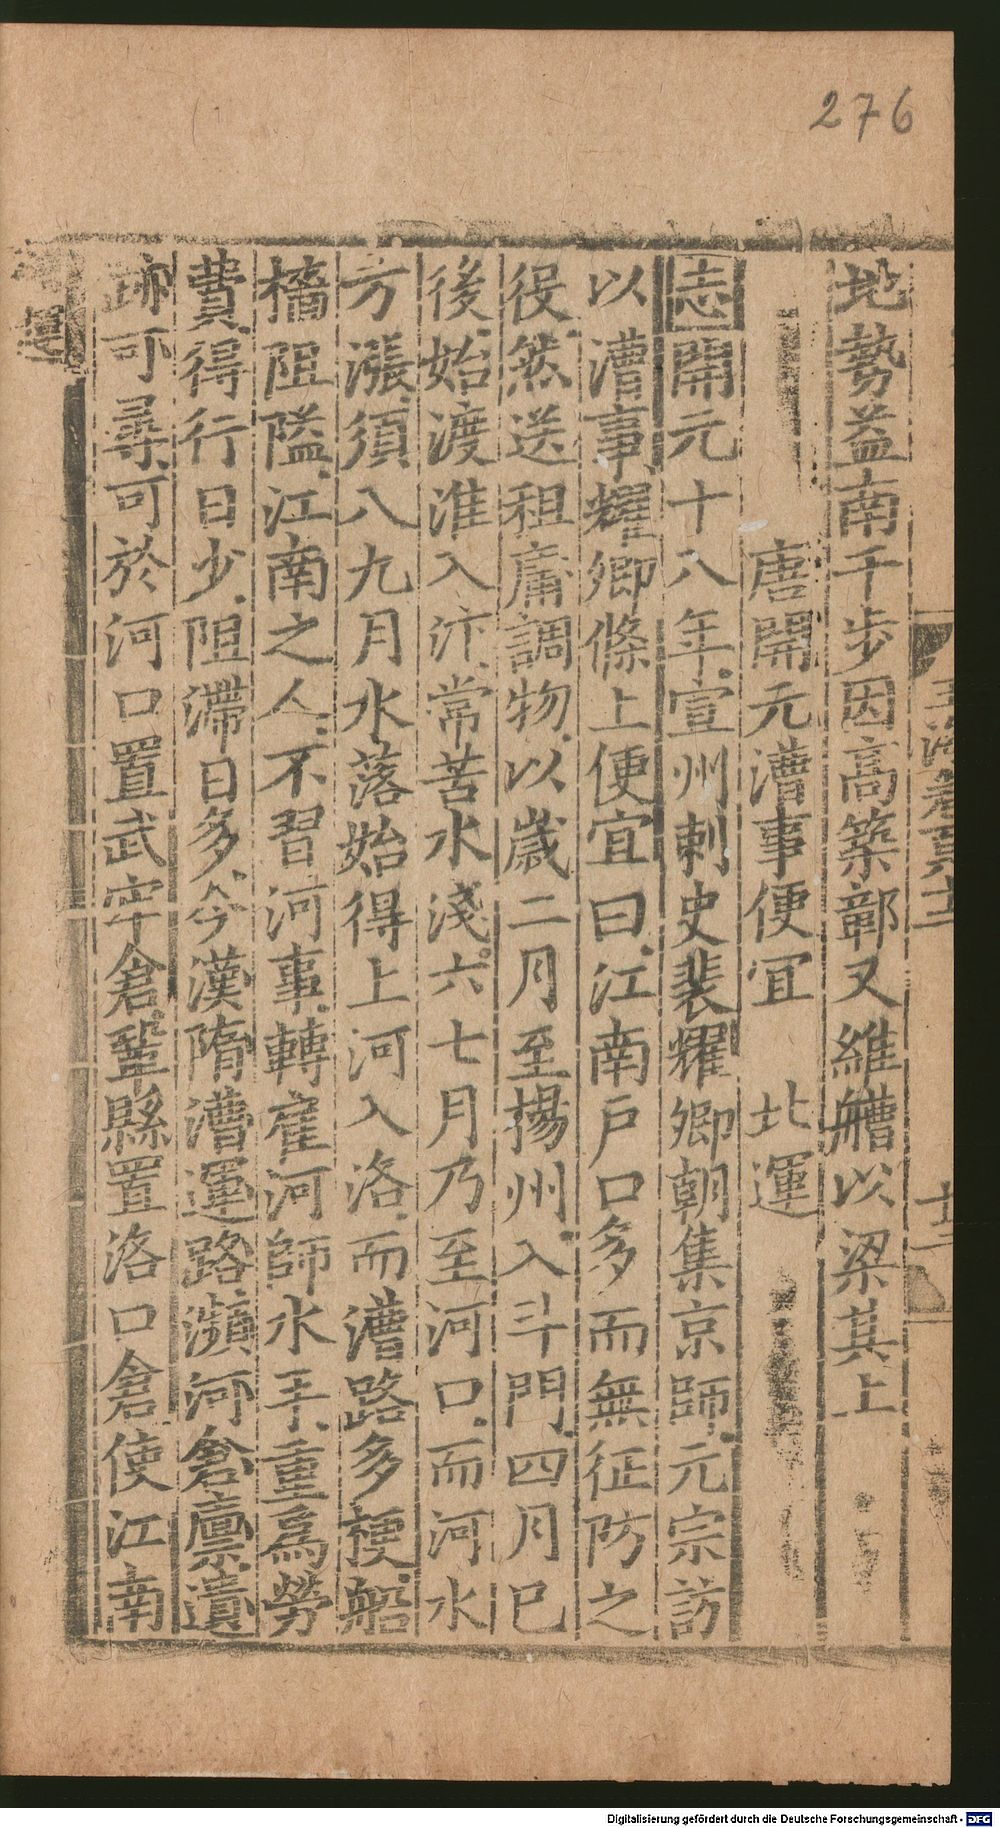 276
地勢益南千步因高築鄣又維艚以梁其上
唐開元漕事便宜 北運
志開元十八年宣州刺史裴耀卿朝集京師元宗訪
以漕事耀卿條上便宜曰江南戶口多而無征防之
役然送租庸調物以歲二月至揚州入斗門四月已
後始渡淮入汴常苦水淺六七月乃至河口而河水
方漲須八九月水落始得上河入洛而漕路多梗船
檣阻隘江南之人不習河事轉雇河師水手重爲勞
費得行日少阻滯日多今漢隋漕運路瀕河倉廩遺
跡可尋可於河口置武牢倉鞏縣置洛口倉使江南
運
Digitalisierung gefördert durch die Deutsche Forschungsgemeinschaft - DFG